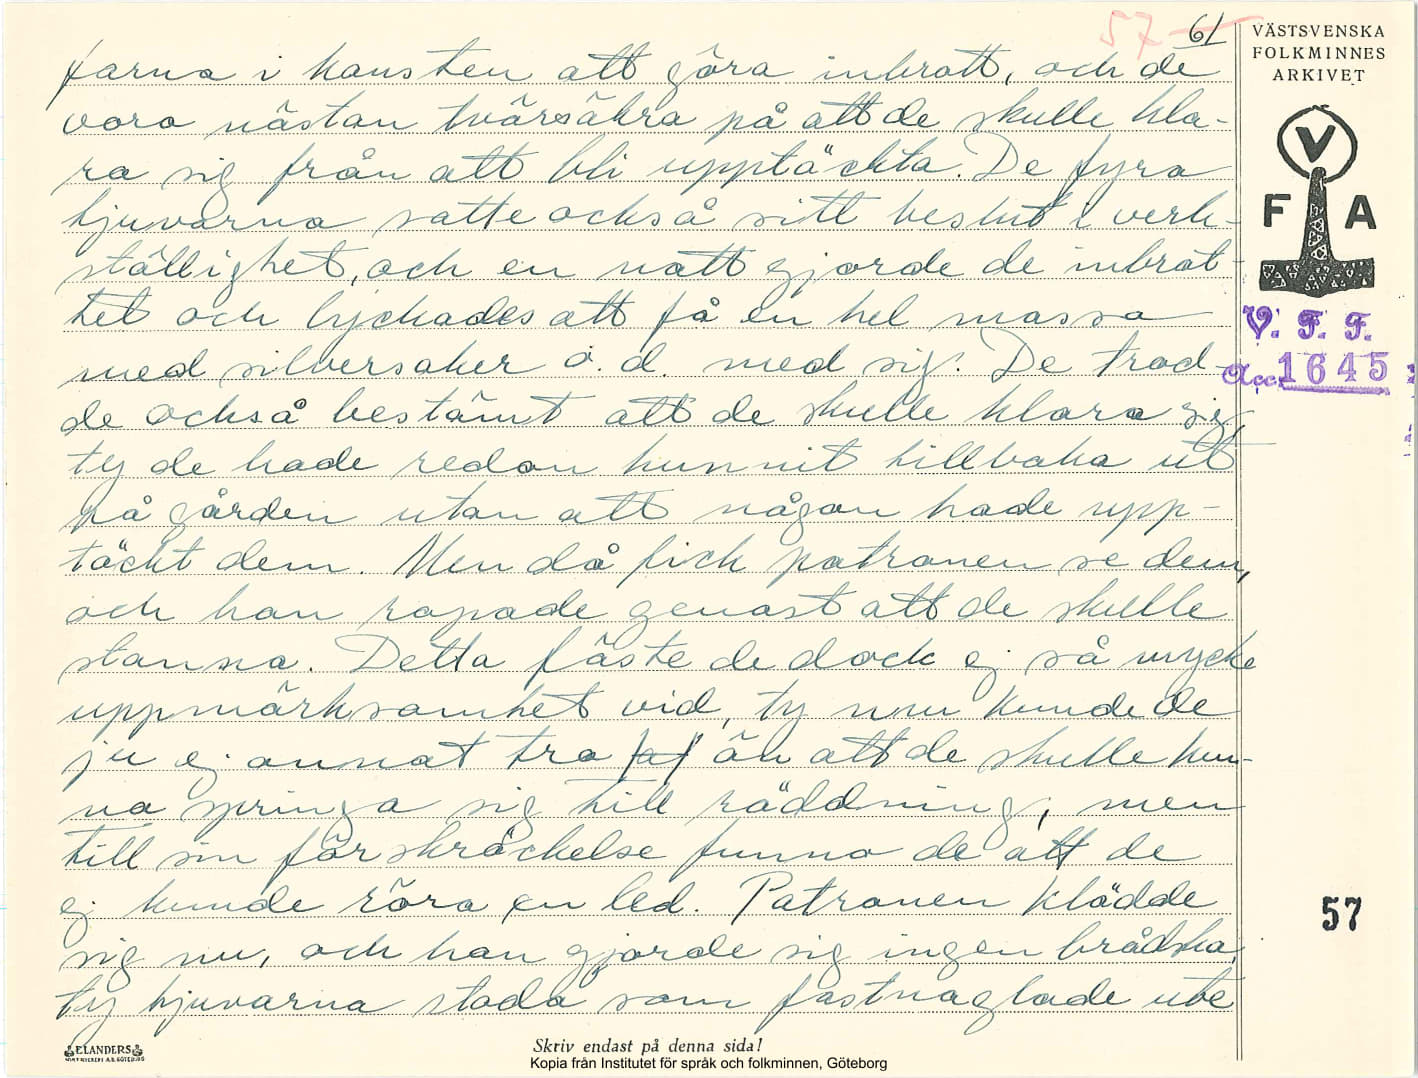 57 61
VÄSTSVENSKA
FOLKMINNES
ARKIVET
farna i konsten att göra inbrott, och de
voro nästan tvärsäkra på att de skulle kla-
ra sig från att bli upptäckta. De fyra
tjuvarna satte också sitt beslut i verk-
ställighet, och en natt gjorde de inbrot-
tet och lyckades att få en hel massa
med silversaker o. d. med sig. De trod-
de också bestämt att de skulle klara sig,
ty de hade redan hunnit tillbaka ut
på gården utan att någon hade upp-
täckt dem. Men då fick patronen se dem,
och han ropade genast att de skulle
stanna. Detta fäste de dock ej så mycke
uppmärksamhet vid, ty nu kunde de
ju ej annat tro än att de skulle kun-
na springa sig till räddning, men
till sin förskräckelse funno de att de
ej kunde röra en led. Patronen klädde
sig nu, och han gjorde sig ingen brådska,
ty tjuvarna stodo som fastnaglade ute
V
F A
V. F. F.
Acc. 1645
57
ELANDERS
Skriv endast på denna sida!
Kopia från Institutet för språk och folkminnen, Göteborg